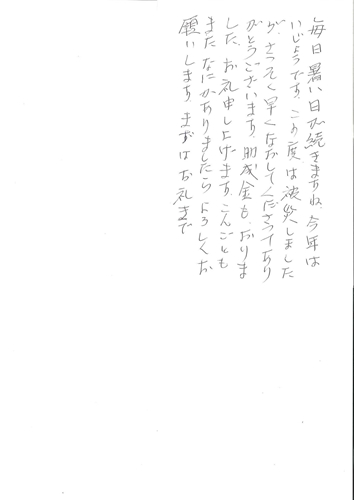 毎日暑い日が続きますね、今年は
いじょうです、この度は被災しました
が、さっそく早くなおしてくださってあり
がとうございます、助成金も、おりま
した、お礼申し上げます、こんごとも
またなにかありましたらよろしくお
願いします、まずはお礼まで